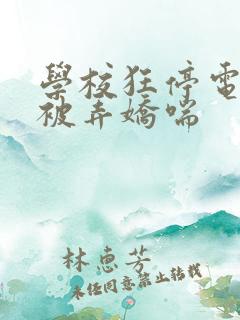 學校狂停電
被弄嬌喘
林惠芳
未経同意禁止轉載